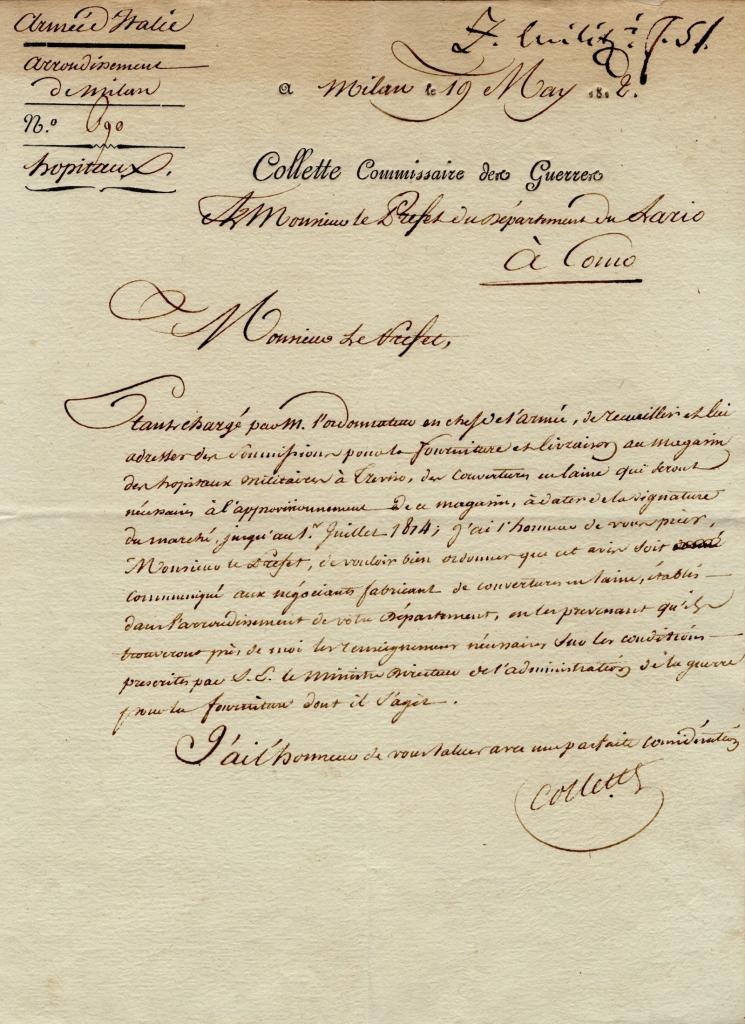 Armée d'Italie
Arrondissement
de Milan
N.º 690
hopitaux.
F. 51.
A Milan le 19 May 1812.
Collette Commissaire des Guerres
A Monsieur le Préfet du Département du Lario
à Como
Monsieur Le Préfet,
Etant chargé par M. l'ordonnateur en chef de l'armée, de recueillir et lui
adresser des Soumissions pour la fourniture et livraison au magasin
des hopitaux militaires à Treviso, des couvertures en laine qui seront
nécessaires à l'approvisionnement de ce magasin, à dater de la signature
du marché, jusqu'au 1.er Juillet 1814; j'ai l'honneur de vous prier,
Monsieur le Préfet, de vouloir bien ordonner que cet avis soit
communiqué aux négocians fabricant de couvertures en laine, établis
dans l'arrondissement de votre Département, en les prevenant qu'ils
trouveront près de moi les renseignemens nécessaires sur les conditions
prescrites par S.E. le Ministre Directeur de l'administration de la guerre
pour la fourniture dont il s'agit.
J'ai l'honneur de vous saluer avec une parfaite considération
Collette